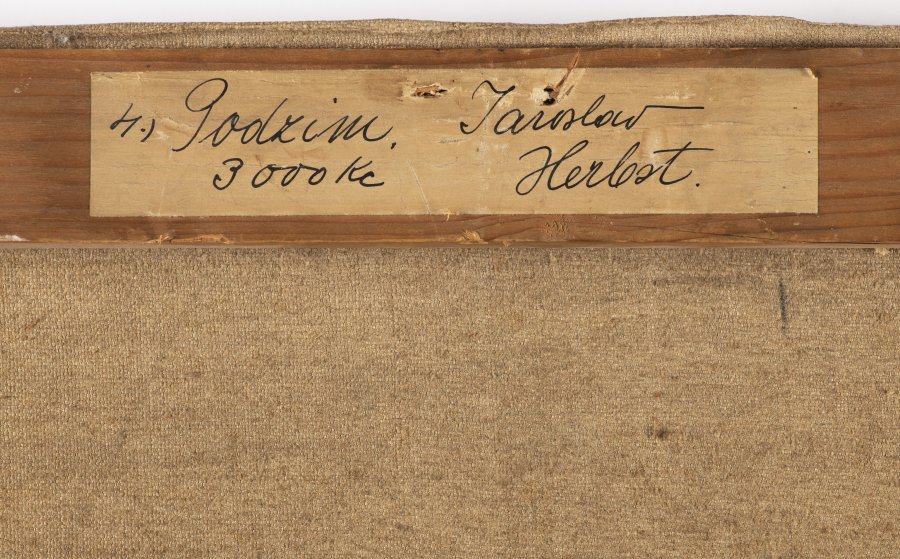 4.) Podzim. Jaroslav
3000 Kc Herbst.